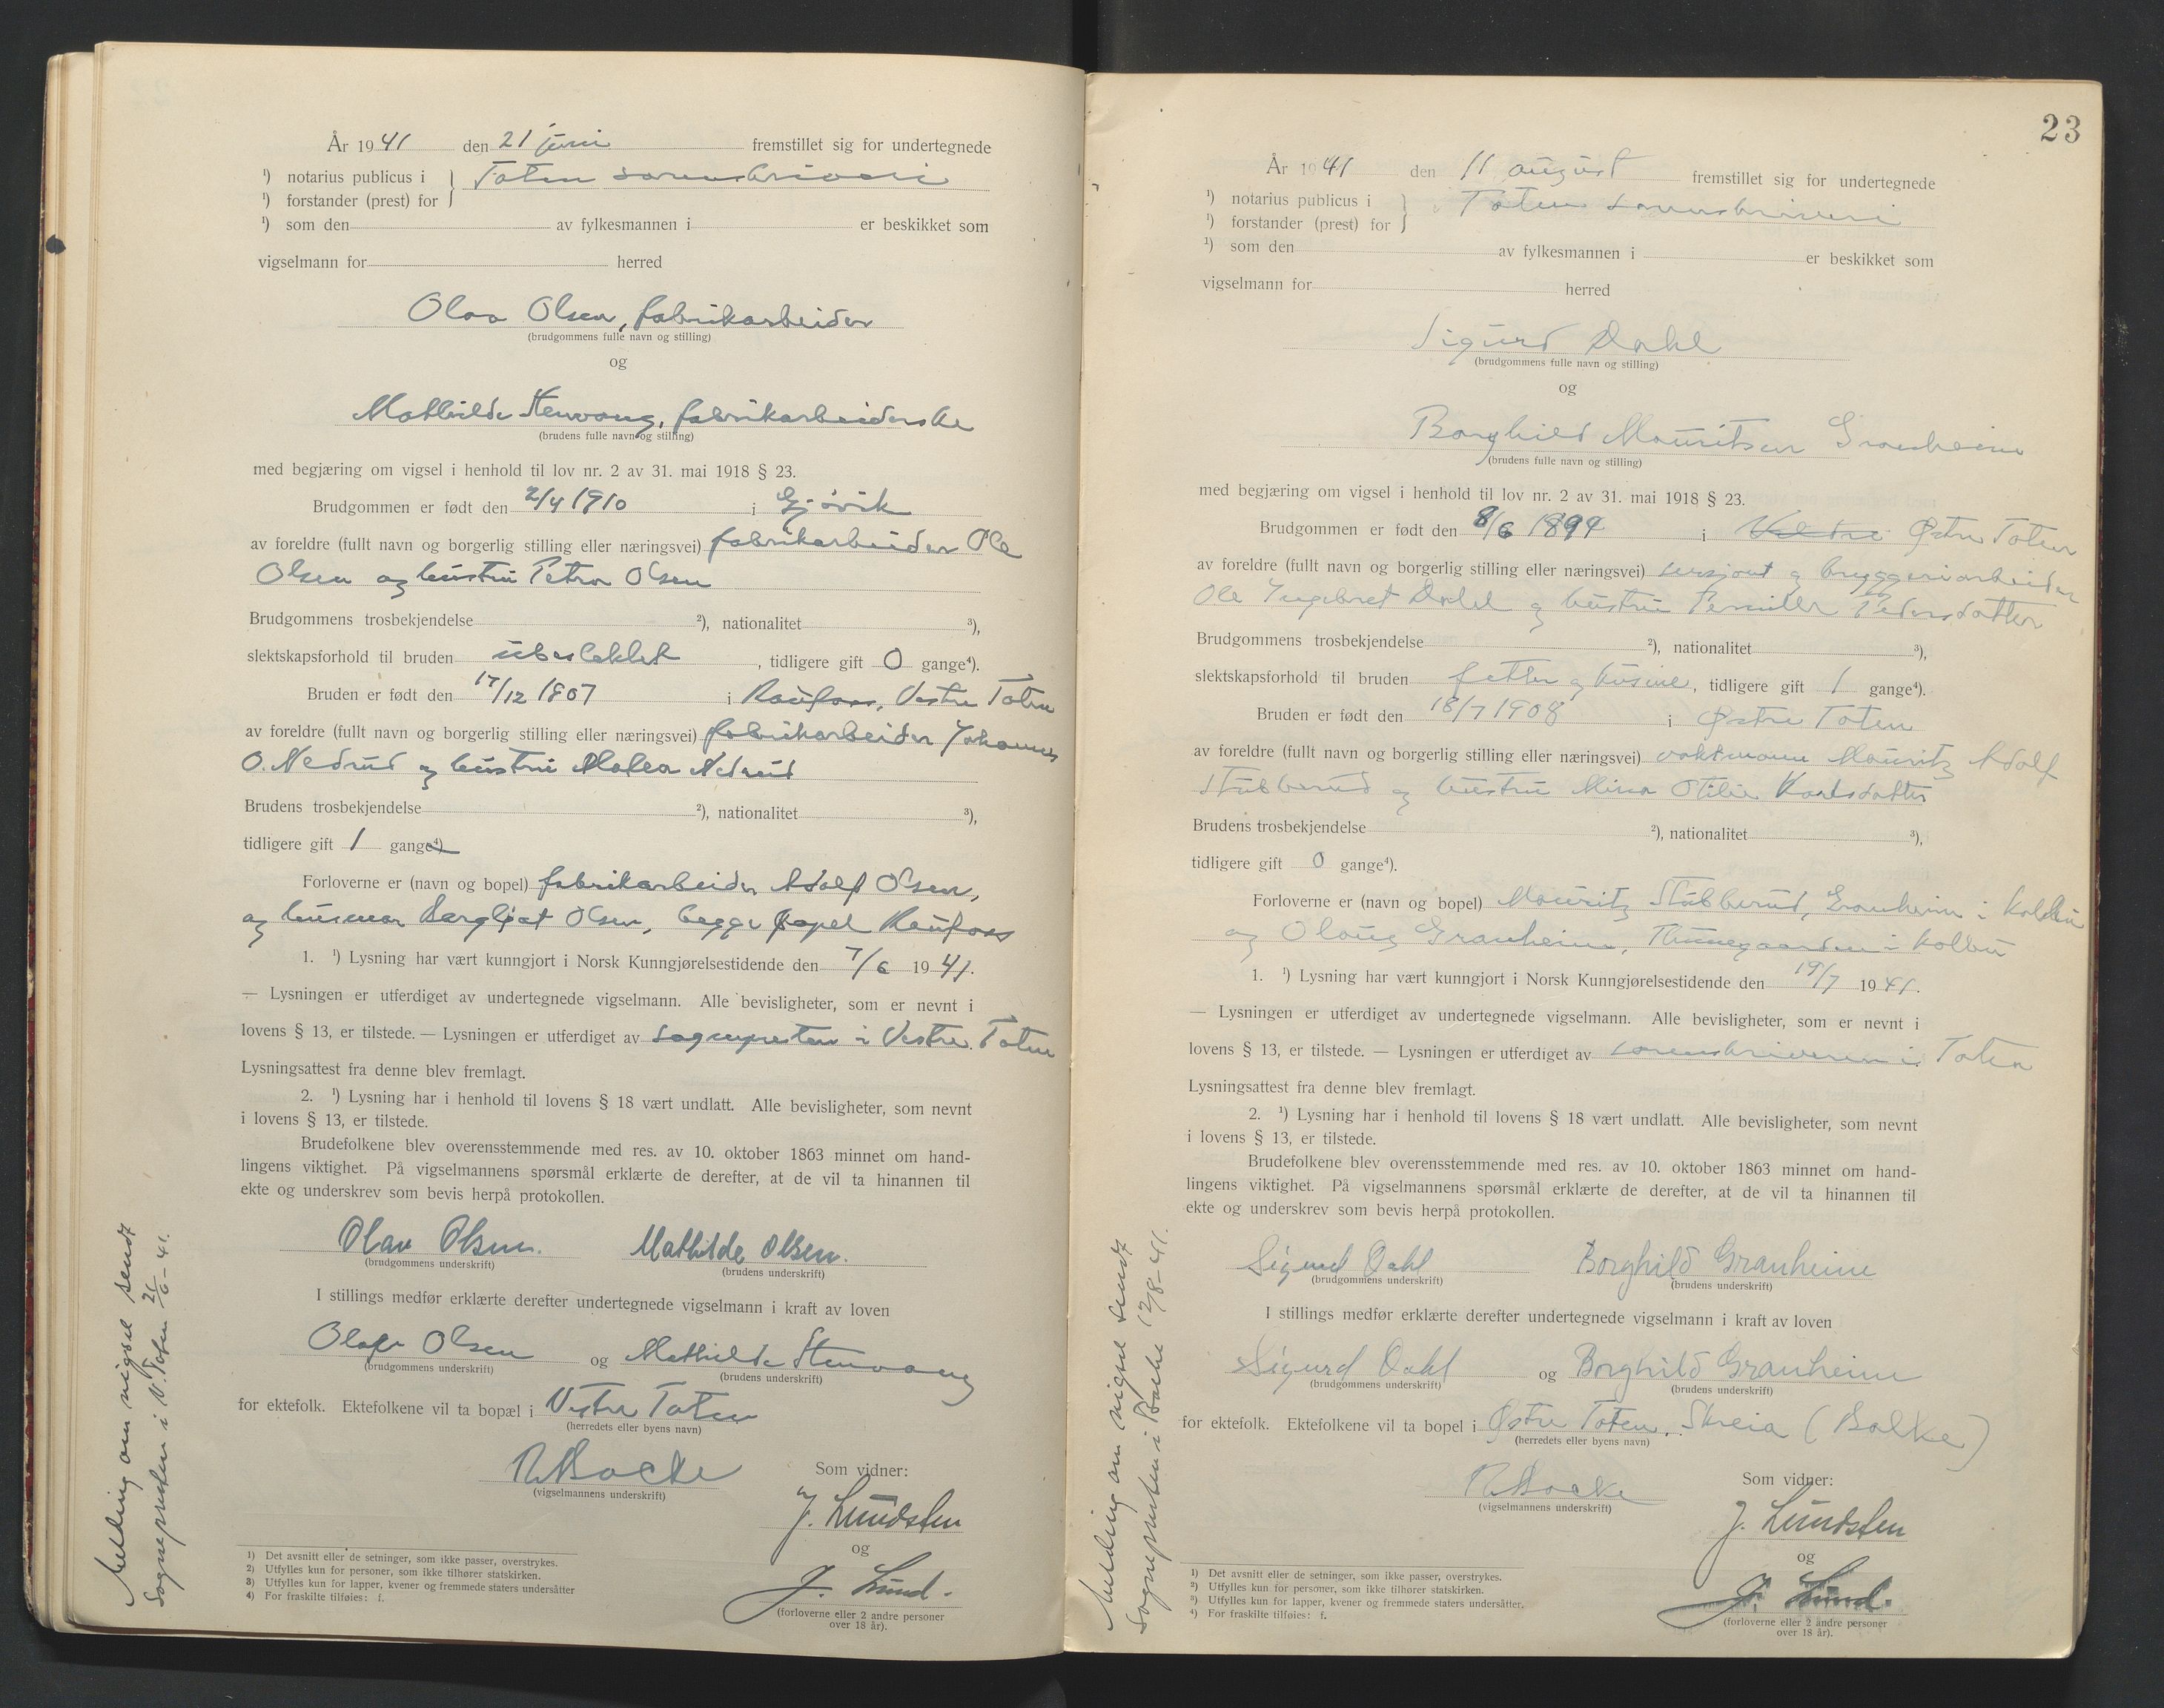 År 1941 den 21 juni fremstillet sig for undertegnede
¹) notarius publicus i } Toten sorenskriveri
¹) forstander (prest) for
¹) som den av fylkesmannen i er beskikket som
vigselmann for herred
Olav Olsen, fabrikarbeider
(brudgommens fulle navn og stilling)
og
Mathilde Stenvang, fabrikarbeiderske
(brudens fulle navn og stilling)
med begjæring om vigsel i henhold til lov nr. 2 av 31. mai 1918 § 23.
Brudgommen er født den 2/4 1910 i Gjøvik
av foreldre (fullt navn og borgerlig stilling eller næringsvei) fabrikarbeider Ole
Olsen og hustru Petra Olsen
Brudgommens trosbekjendelse ²), nationalitet ³),
slektskapsforhold til bruden ubeslektet, tidligere gift 0 gange⁴).
Bruden er født den 17/12 1807 i Raufoss, Vestre Toten
av foreldre (fullt navn og borgerlig stilling eller næringsvei) fabrikarbeider Johannes
O. Nedrud og hustru Malea Nedrud
Brudens trosbekjendelse ²), nationalitet ³),
tidligere gift 1 gange⁴)
Forloverne er (navn og bopel) fabrikarbeider Adolf Olsen,
og husmor Bergljot Olsen, begge bopel Raufoss
1. ¹) Lysning har vært kunngjort i Norsk Kunngjørelsestidende den 7/6 1941.
— Lysningen er utferdiget av undertegnede vigselmann. Alle bevisligheter, som er nevnt i
lovens § 13, er tilstede. — Lysningen er utferdiget av sognepresten i Vestre Toten
Lysningsattest fra denne blev fremlagt.
2. ¹) Lysning har i henhold til lovens § 18 vært undlatt. Alle bevisligheter, som nevnt
i lovens § 13, er tilstede.
Brudefolkene blev overensstemmende med res. av 10. oktober 1863 minnet om hand-
lingens viktighet. På vigselmannens spørsmål erklærte de derefter, at de vil ta hinannen til
ekte og underskrev som bevis herpå protokollen.
Olav Olsen. Mathilde Olsen.
(brudgommens underskrift) (brudens underskrift)
I stillings medfør erklærte derefter undertegnede vigselmann i kraft av loven
Olaf Olsen og Mathilde Stenvang
(brudgommens underskrift) (brudens underskrift)
for ektefolk. Ektefolkene vil ta bopæl i Vestre Toten
(herredets eller byens navn)
(vigselmannens underskrift)
Som vidner:
J. Lundsten
og
J. Lund.
(forloverne eller 2 andre personer
over 18 år).
1) Det avsnitt eller de setninger, som ikke passer, overstrykes.
2) Utfylles kun for personer, som ikke tilhører statskirken.
3) Utfylles kun for lapper, kvener og fremmede staters undersåtter
4) For fraskilte tilføies: f.
Melding om vigsel sendt
Sognepresten i V. Toten 21/6-41.
23
År 1941 den 11 august fremstillet sig for undertegnede
¹) notarius publicus i } Toten sorenskriveri
¹) forstander (prest) for
¹) som den av fylkesmannen i er beskikket som
vigselmann for herred
Sigurd Dahl
(brudgommens fulle navn og stilling)
og
Borghild Mauritsen Granheim
(brudens fulle navn og stilling)
med begjæring om vigsel i henhold til lov nr. 2 av 31. mai 1918 § 23.
Brudgommen er født den 8/6 1894 i Østre Toten
av foreldre (fullt navn og borgerlig stilling eller næringsvei) sersjant og bryggeriarbeider
Ole Ingebret Dahl og hustru Pernille Pedersdatter
Brudgommens trosbekjendelse ²), nationalitet ³),
slektskapsforhold til bruden fetter og kusine, tidligere gift 1 gange⁴).
Bruden er født den 18/7 1908 i Østre Toten
av foreldre (fullt navn og borgerlig stilling eller næringsvei) vaktmann Mauritz Adolf
Stubberud og hustru Mina Otilie Karlsdatter
Brudens trosbekjendelse ²), nationalitet ³),
tidligere gift 0 gange⁴).
Forloverne er (navn og bopel) Mauritz Stubberud, Granheim i Kolbu
og Olaug Granheim, i Kolbu
1. ¹) Lysning har vært kunngjort i Norsk Kunngjørelsestidende den 19/7 1941.
— Lysningen er utferdiget av undertegnede vigselmann. Alle bevisligheter, som er nevnt i
lovens § 13, er tilstede. — Lysningen er utferdiget av sorenskriveren i Toten
Lysningsattest fra denne blev fremlagt.
2. ¹) Lysning har i henhold til lovens § 18 vært undlatt. Alle bevisligheter, som nevnt
i lovens § 13, er tilstede.
Brudefolkene blev overensstemmende med res. av 10. oktober 1863 minnet om hand-
lingens viktighet. På vigselmannens spørsmål erklærte de derefter, at de vil ta hinannen til
ekte og underskrev som bevis herpå protokollen.
Sigurd Dahl Borghild Granheim
(brudgommens underskrift) (brudens underskrift)
I stillings medfør erklærte derefter undertegnede vigselmann i kraft av loven
Sigurd Dahl og Borghild Granheim
(brudgommens underskrift) (brudens underskrift)
for ektefolk. Ektefolkene vil ta bopel i Østre Toten, Skreia (Balke)
(herredets eller byens navn)
(vigselmannens underskrift)
Som vidner:
J. Lundsten
og
J. Lund.
(forloverne eller 2 andre personer
over 18 år).
¹) Det avsnitt eller de setninger, som ikke passer, overstrykes.
²) Utfylles kun for personer, som ikke tilhører statskirken.
³) Utfylles kun for lapper, kvener og fremmede staters undersåtter.
⁴) For fraskilte tilføies: f.
Melding om vigsel sendt
Sognepresten i Balke 12/8-41.